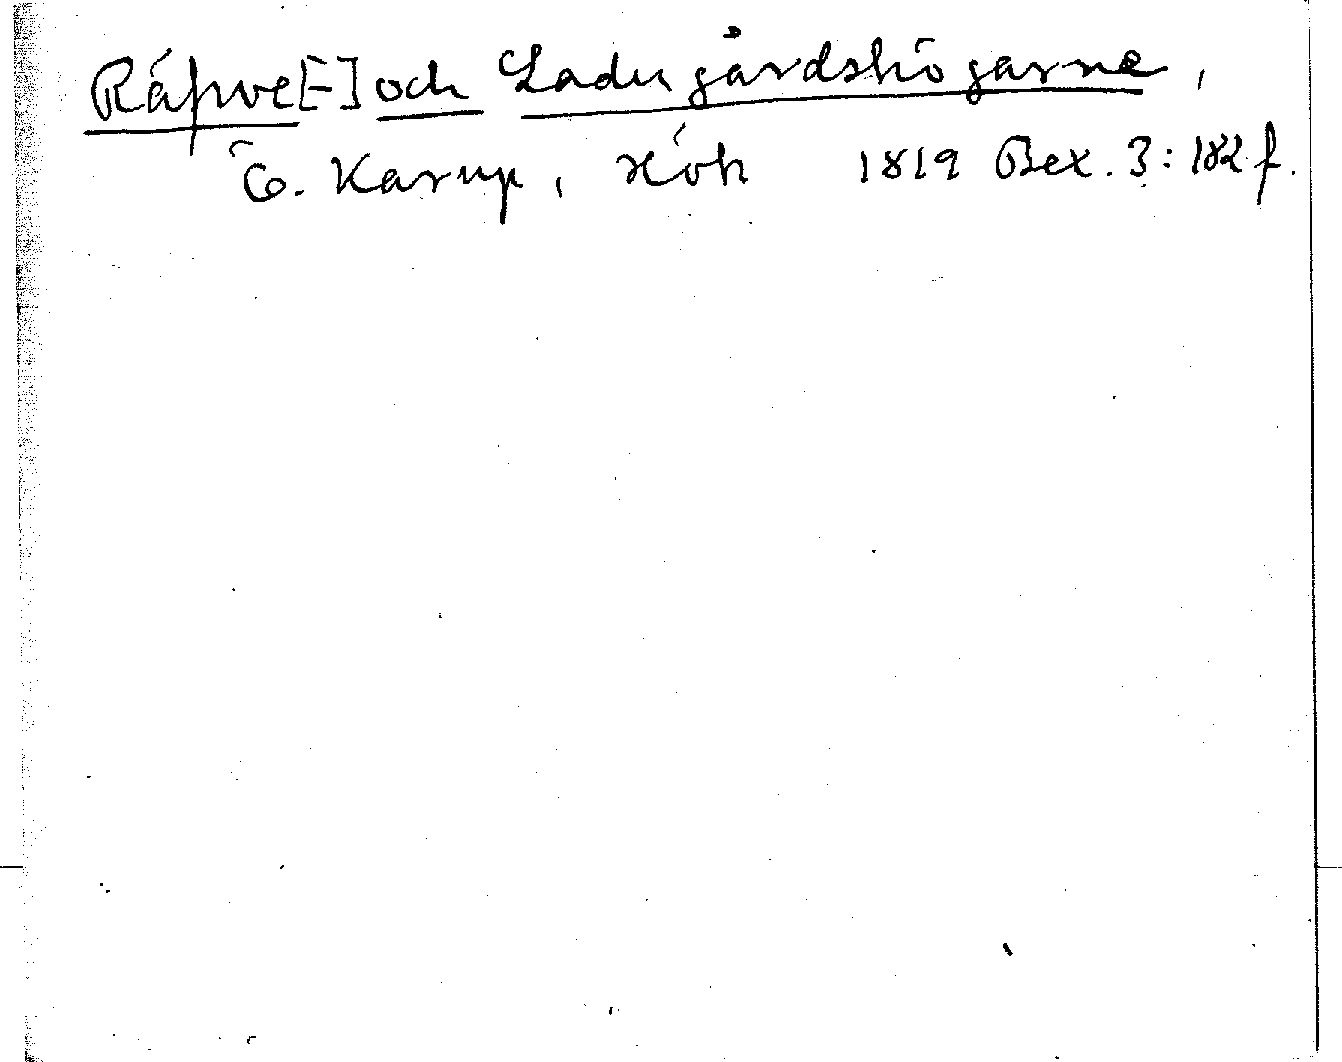 Räfwe[-] och Ladugårdshögarne,
Ö. Karup, Höh 1819 Bex. 3: 182 f.